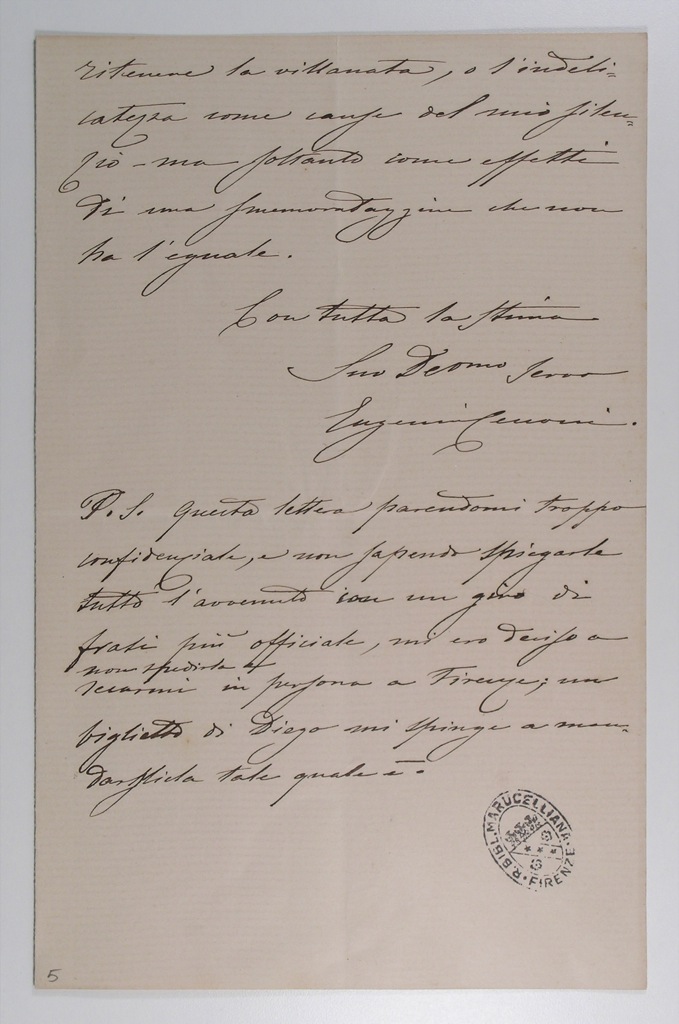 ritenere la villanata, o l'indeli=
catezza come cause del mio silen=
zio - ma soltanto come effetti
di una smemorataggine che non
ha l'eguale.
Con tutta la stima
Suo Devmo Servo
Eugenio Cecconi.
P. S. Questa lettera parendomi troppo
confidenziale, e non sapendo spiegarle
tutto l'avvenuto con un giro di
frasi più officiale, mi ero deciso a
non spedirla e
recarmi in persona a Firenze; un
biglietto di Diego mi spinge a man=
dargliela tale quale è.
R. BIBL. MARUCELLIANA · FIRENZE ·
5